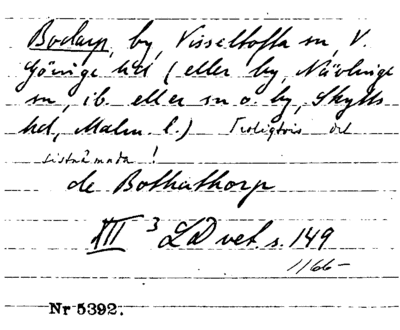 Bodarp, by, Visseltofta sn, V.
Göinge hd (eller by, Nävlinge
sn, ib. eller sn o. by, Skytts
hd, Malm. l.) Troligtvis det
sistnämnda!
de Bothathorp
XIII 3 LD vet. s. 149
1166-
Nr 5392.